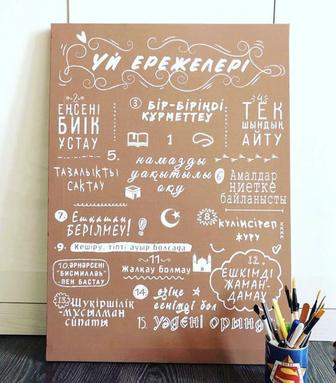 ҮЙ ЕРЕЖЕЛЕРІ
2.
ЕҢСЕНІ
БИІК
ҰСТАУ
3 БІР-БІРІҢДІ
ҚҰРМЕТТЕУ
1
4
ТЕК
ШЫНДЫҚ
АЙТУ
5.
ТАЗАЛЫҚТЫ
САҚТАУ
намазды
уақытылы
оқу
6 Амалдар
ниетке
байланысты
7. Ешқашан
БЕРІЛМЕУ!
8. күлімсіреп
жүру
9. Кешіру, тіпті ауыр болсада
10. ӘРНӘРСЕНІ
"БИСМИЛЛӘҺ"
ПЕН БАСТАУ
11
Жалқау болмау
12.
ЕШКІМДІ
ЖАМАН-
ДАМАУ
13. Шүкіршілік-
мұсылман
сипаты
14. өзіңе
сенімді бол
15. Уәдені орында